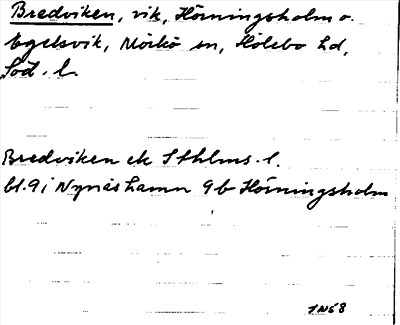 Bredviken, vik, Hörningsholm o.
Egelsvik, Mörkö sn, Hölebo hd,
Söd. l.
Bredviken ek Sthlms. l.
bl. 9 i Nynäshamn 9b Hörningsholm
1N58